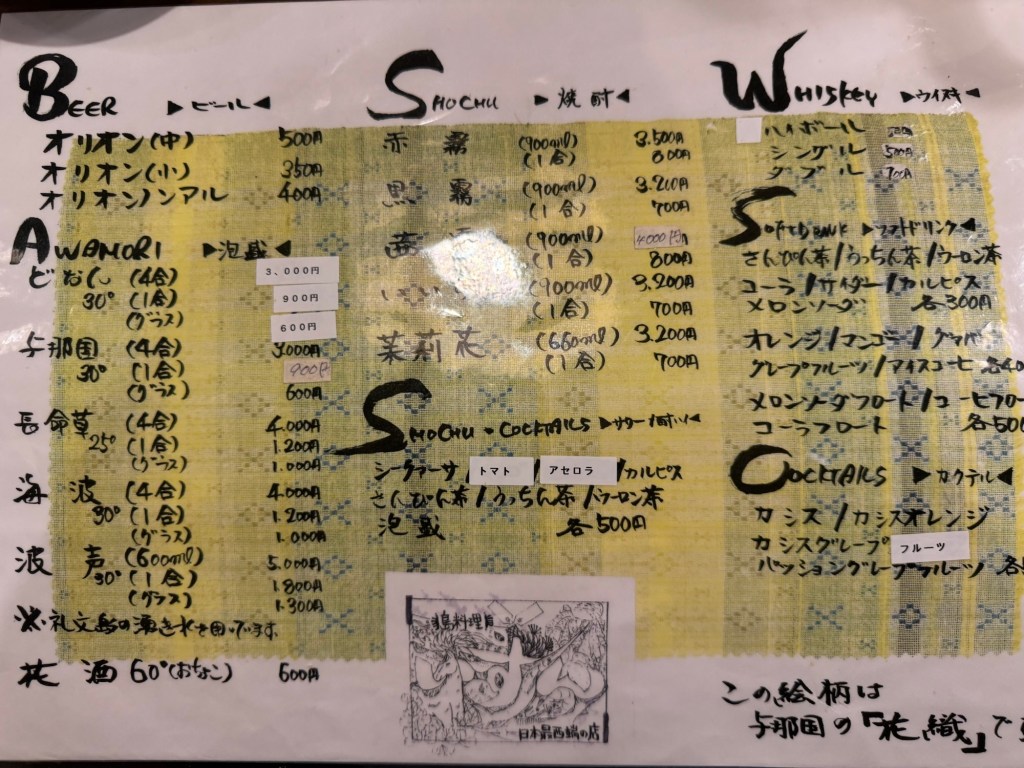 BEER ▶ビール◀
オリオン(中) 500円
オリオン(小) 350円
オリオンノンアル 400円
AWAMORI ▶泡盛◀
どなん(4合) 3,000円
30°(1合) 900円
(グラス) 600円
与那国(4合) 3,000円
30°(1合) 900円
(グラス) 600円
長命草(4合) 4.000円
25°(1合) 1.200円
(グラス) 1.000円
海波(4合) 4.000円
30°(1合) 1.200円
(グラス) 1.000円
波声(600ml) 5.000円
30°(1合) 1.800円
(グラス) 1.300円
花酒60°(おちょこ) 600円
SHOCHU ▶焼酎◀
赤霧(900ml) 3.500円
(1合) 800円
黒霧(900ml) 3.200円
(1合) 700円
茜霧(900ml) 4000円
(1合) 800円
(900ml) 3.200円
(1合) 700円
茉莉花(660ml) 3.200円
(1合) 700円
SHOCHU・COCKTAILS
シークァーサ トマト / アセロラ /カルピス
さんぴん茶/うっちん茶/ウーロン茶
泡盛 各500円
WHISKEY ▶ウイスキ◀
ハイボール 500円
シングル 500円
ダブル 700円
▶ソフトドリンク◀
さんぴん茶/うっちん茶/ウーロン茶
コーラ/サイダー/カルピス
メロンソーダ 各300円
オレンジ/マンゴー/グァバ
グレープフルーツ/アイスコーヒ 各40
メロンソーダフロート/コーヒフロー
コーラフロート 各500
COCKTAILS ▶カクテル◀
カシス/カシスオレンジ
カシスグレープ フルーツ
パッショングレープフルーツ 各
日本最西端の店
この絵柄は
与那国の「花織」で